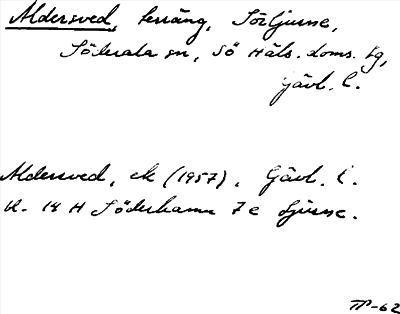 Aldersved, terräng, Sörljusne,
Söderala sn, Sö Häls. doms. tg,
Gävl. l.
Aldersved, ek (1957), Gävl. l.
bl. 14 H Söderhamn 7 e Ljusne.
TP-62